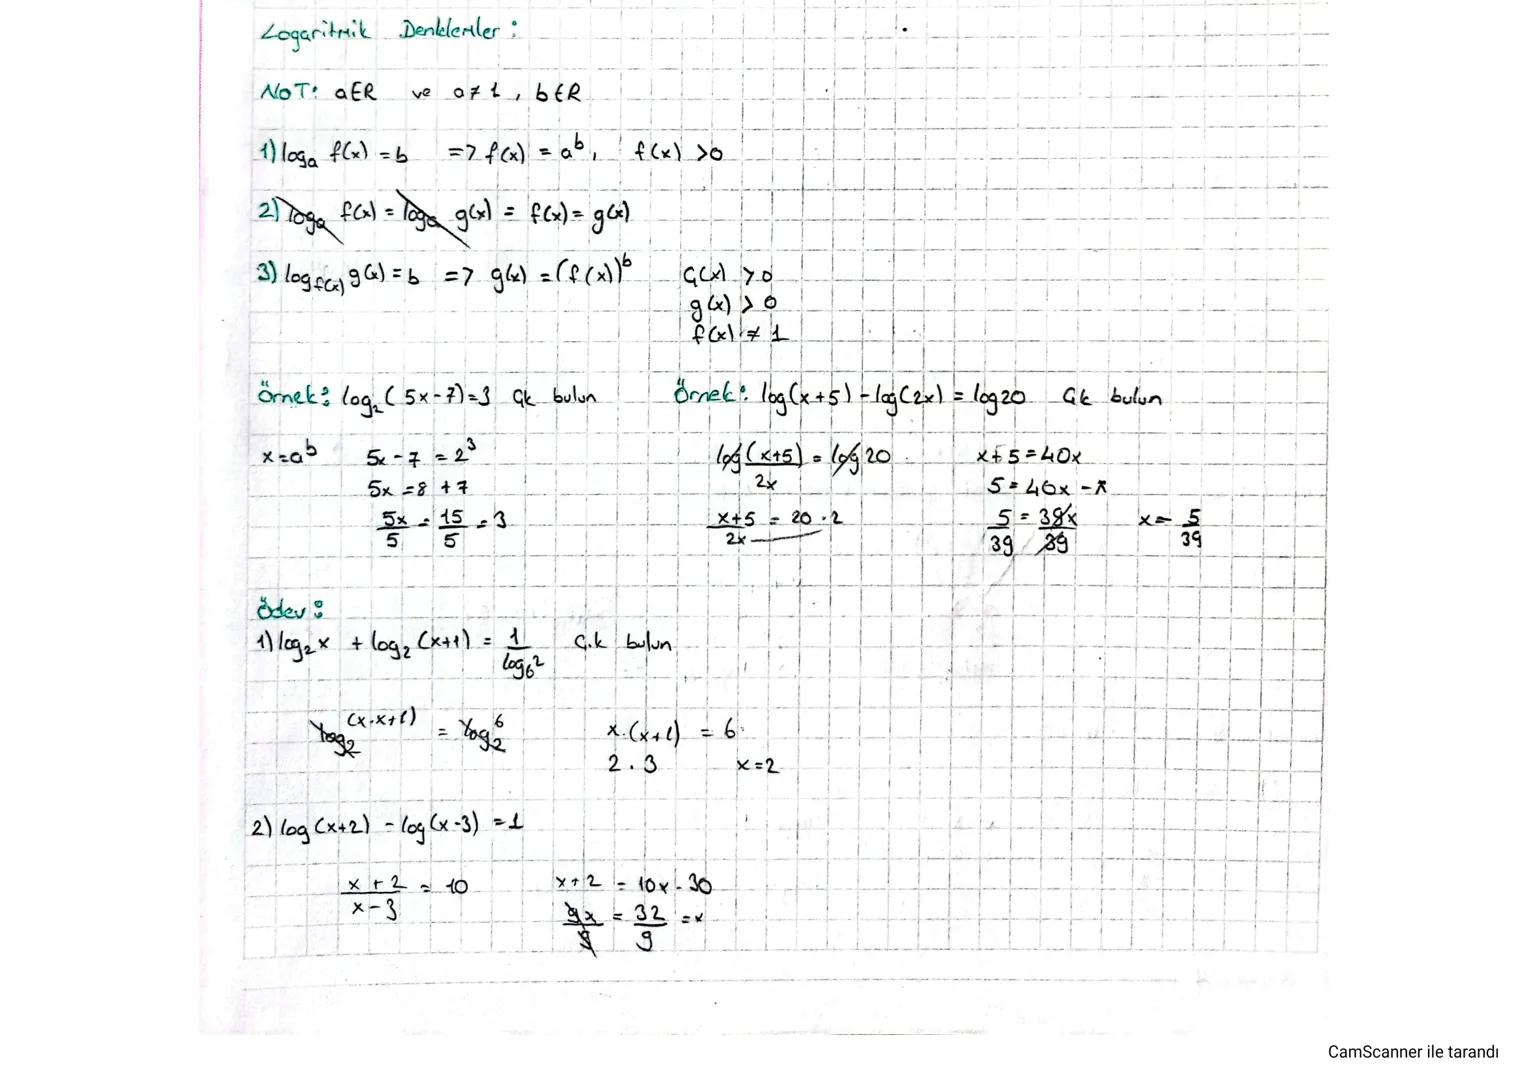 Logaritmik Denklemler :
NOT: a∈R ve a≠1, b∈R
1) logₐ f(x) = b => f(x) = aᵇ, f(x) >0
2) logₐ f(x) = logₐ g(x) = f(x) = g(x)
3) log_f(x) g(x) = b => g(x) = (f(x))ᵇ G(x) >0
g(x) > 0
f(x) ≠ 1
Örnek: log₂(5x-7)=3 Çk bulun
x=aᵇ 5x-7 = 2³
5x = 8 +7
5x/5 = 15/5 = 3
Örnek: log(x+5) - log(2x) = log20 Çk bulun
log (x+5)/2x = log 20
x+5/2x = 20 · 2
x+5=40x
5 = 40x - x
5/39 = 39x/39 x = 5/39
Ödev :
1) log₂x + log₂(x+1) = 1/log₆2 Ç.k bulun
log₂(x·x+1) = log₂6 x.(x+1) = 6
2 . 3 x=2
2) log(x+2) - log(x-3) = 1
x+2/x-3 = 10 x+2 = 10x - 30
9x/9 = 32/9 = x
CamScanner ile tarandı